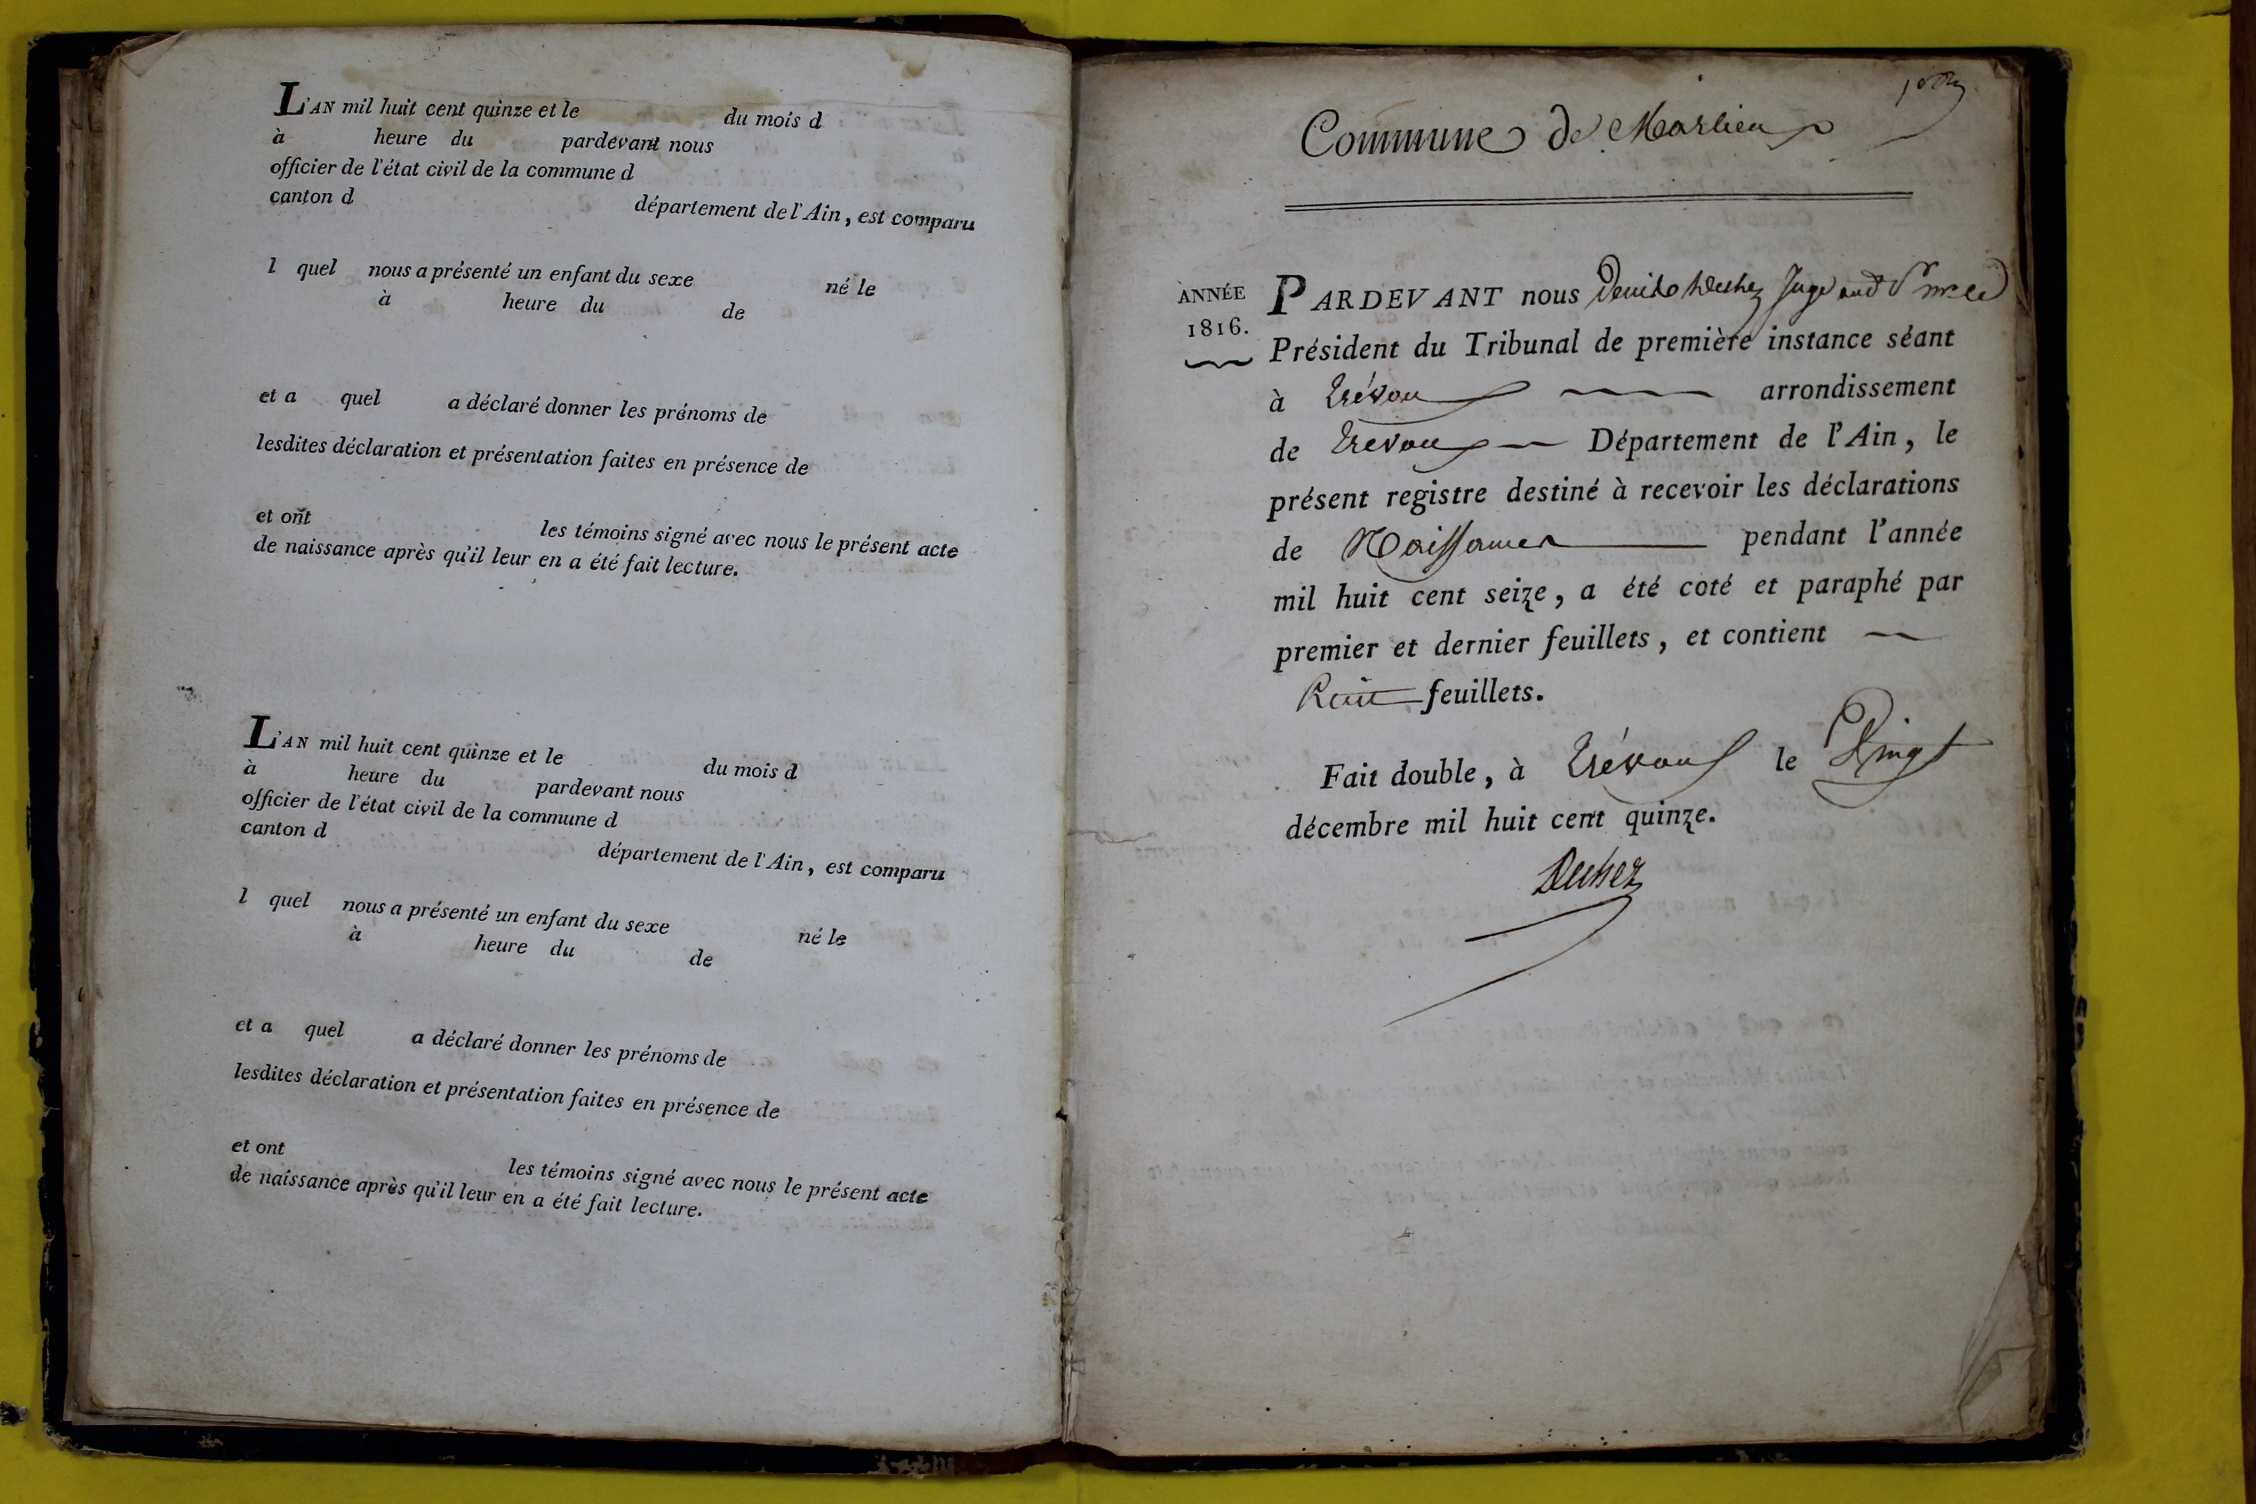 L'AN mil huit cent quinze et le du mois d
à heure du pardevant nous
officier de l'état civil de la commune d
canton d département de l'Ain, est comparu
l quel nous a présenté un enfant du sexe né le
à heure du de
et a quel a déclaré donner les prénoms de
lesdites déclaration et présentation faites en présence de
et ont les témoins signé avec nous le présent acte
de naissance après qu'il leur en a été fait lecture.
L'AN mil huit cent quinze et le du mois d
à heure du pardevant nous
officier de l'état civil de la commune d
canton d département de l'Ain, est comparu
l quel nous a présenté un enfant du sexe né le
à heure du de
et a quel a déclaré donner les prénoms de
lesdites déclaration et présentation faites en présence de
et ont les témoins signé avec nous le présent acte
de naissance après qu'il leur en a été fait lecture.
Commune de Marlieu
ANNÉE
1816.
PARDEVANT nous Juge
Président du Tribunal de première instance séant
à Trévoux arrondissement
de Trevoux Département de l'Ain, le
présent registre destiné à recevoir les déclarations
de Naissances pendant l'année
mil huit cent seize, a été coté et paraphé par
premier et dernier feuillets, et contient
huit feuillets.
Fait double, à Trévoux le Vingt
décembre mil huit cent quinze.